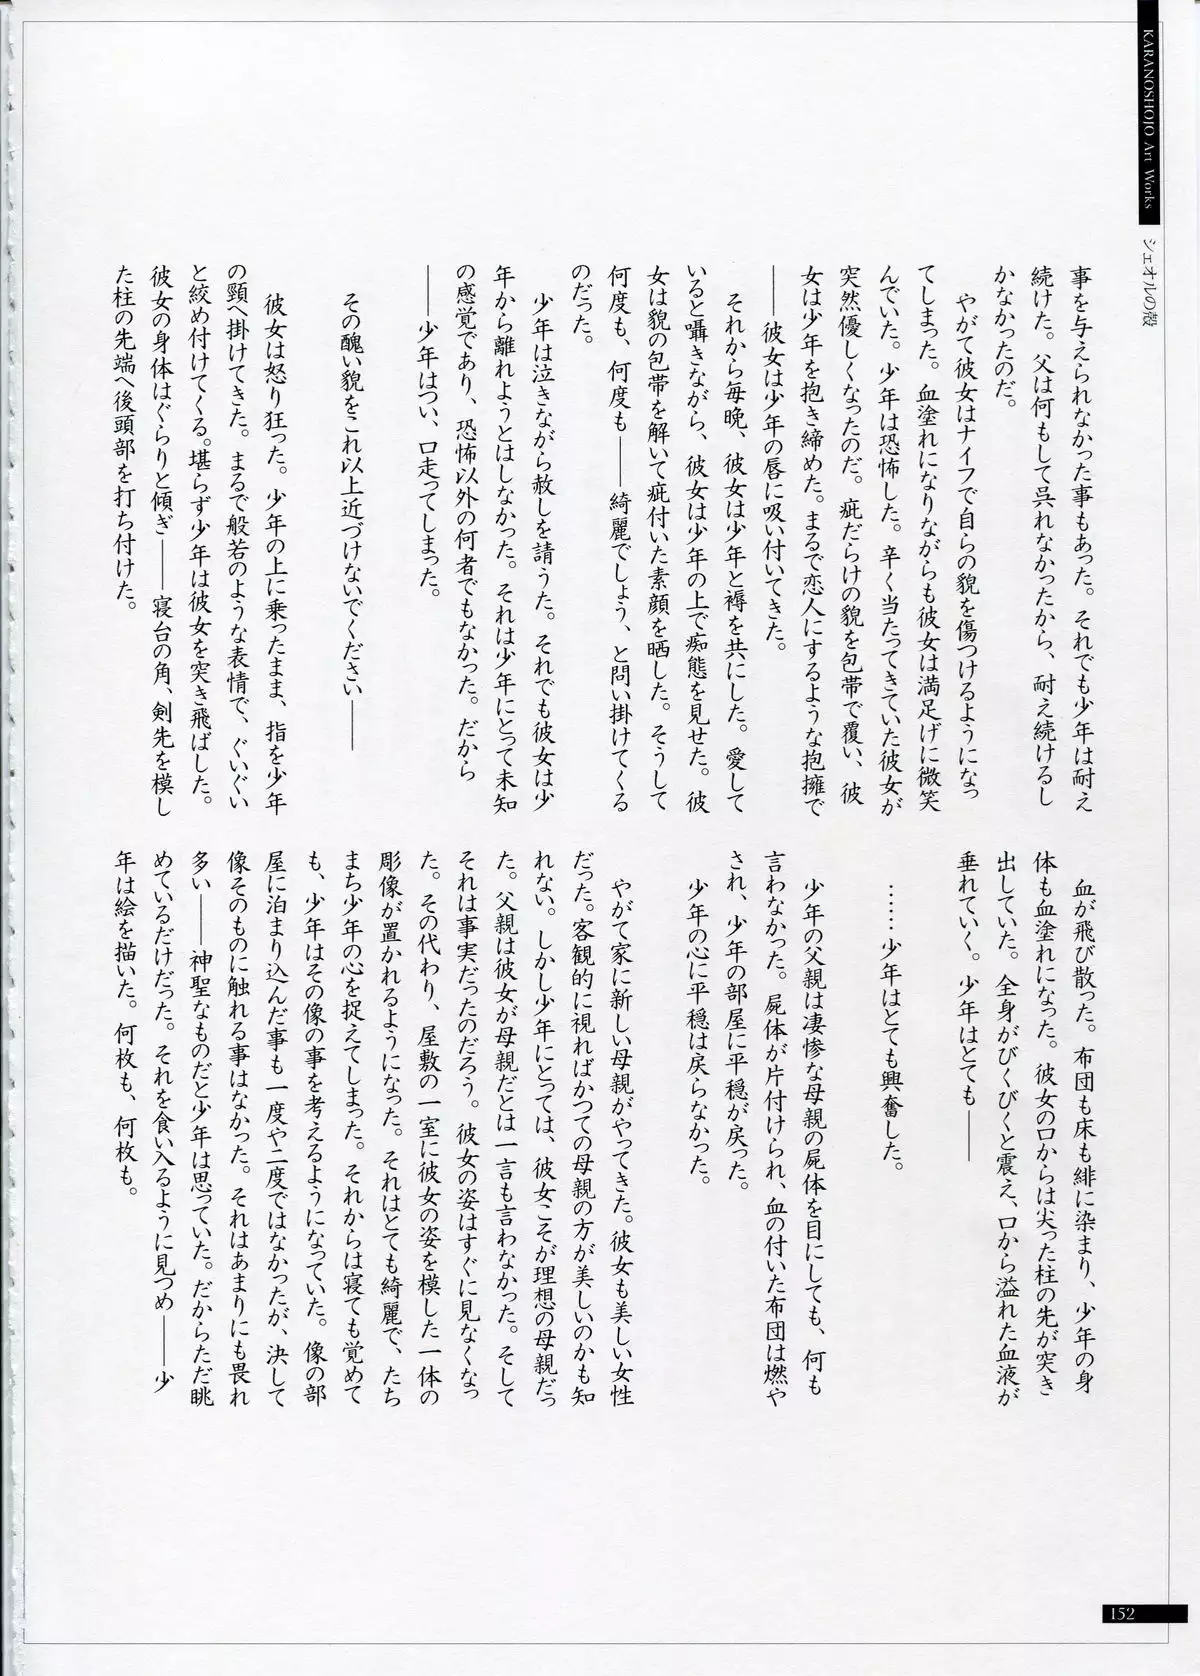 KARANOSHOJO Art Works
シェオルの殻
事を与えられなかった事もあった。それでも少年は耐え
続けた。父は何もして呉れなかったから、耐え続けるし
かなかったのだ。
やがて彼女はナイフで自らの貌を傷つけるようになっ
てしまった。血塗れになりながらも彼女は満足げに微笑
んでいた。少年は恐怖した。辛く当たってきていた彼女が
突然優しくなったのだ。疵だらけの貌を包帯で覆い、彼
女は少年を抱き締めた。まるで恋人にするような抱擁で
――彼女は少年の唇に吸い付いてきた。
それから毎晩、彼女は少年と褥を共にした。愛して
いると囁きながら、彼女は少年の上で痴態を見せた。彼
女は貌の包帯を解いて疵付いた素顔を晒した。そうして
何度も、何度も――綺麗でしょう、と問い掛けてくる
のだった。
少年は泣きながら赦しを請うた。それでも彼女は少
年から離れようとはしなかった。それは少年にとって未知
の感覚であり、恐怖以外の何者でもなかった。だから
――少年はつい、口走ってしまった。
その醜い貌をこれ以上近づけないでください――
彼女は怒り狂った。少年の上に乗ったまま、指を少年
の頸へ掛けてきた。まるで般若のような表情で、ぐいぐい
と絞め付けてくる。堪らず少年は彼女を突き飛ばした。
彼女の身体はぐらりと傾ぎ――寝台の角、剣先を模し
た柱の先端へ後頭部を打ち付けた。
血が飛び散った。布団も床も緋に染まり、少年の身
体も血塗れになった。彼女の口からは尖った柱の先が突き
出していた。全身がびくびくと震え、口から溢れた血液が
垂れていく。少年はとても――
……少年はとても興奮した。
少年の父親は凄惨な母親の屍体を目にしても、何も
言わなかった。屍体が片付けられ、血の付いた布団は燃や
され、少年の部屋に平穏が戻った。
少年の心に平穏は戻らなかった。
やがて家に新しい母親がやってきた。彼女も美しい女性
だった。客観的に視ればかつての母親の方が美しいのかも知
れない。しかし少年にとっては、彼女こそが理想の母親だっ
た。父親は彼女が母親だとは一言も言わなかった。そして
それは事実だったのだろう。彼女の姿はすぐに見なくなっ
た。その代わり、屋敷の一室に彼女の姿を模した一体の
彫像が置かれるようになった。それはとても綺麗で、たち
まち少年の心を捉えてしまった。それからは寝ても覚めて
も、少年はその像の事を考えるようになっていた。像の部
屋に泊まり込んだ事も一度や二度ではなかったが、決して
像そのものに触れる事はなかった。それはあまりにも畏れ
多い――神聖なものだと少年は思っていた。だからただ眺
めているだけだった。それを食い入るように見つめ――少
年は絵を描いた。何枚も、何枚も。
152